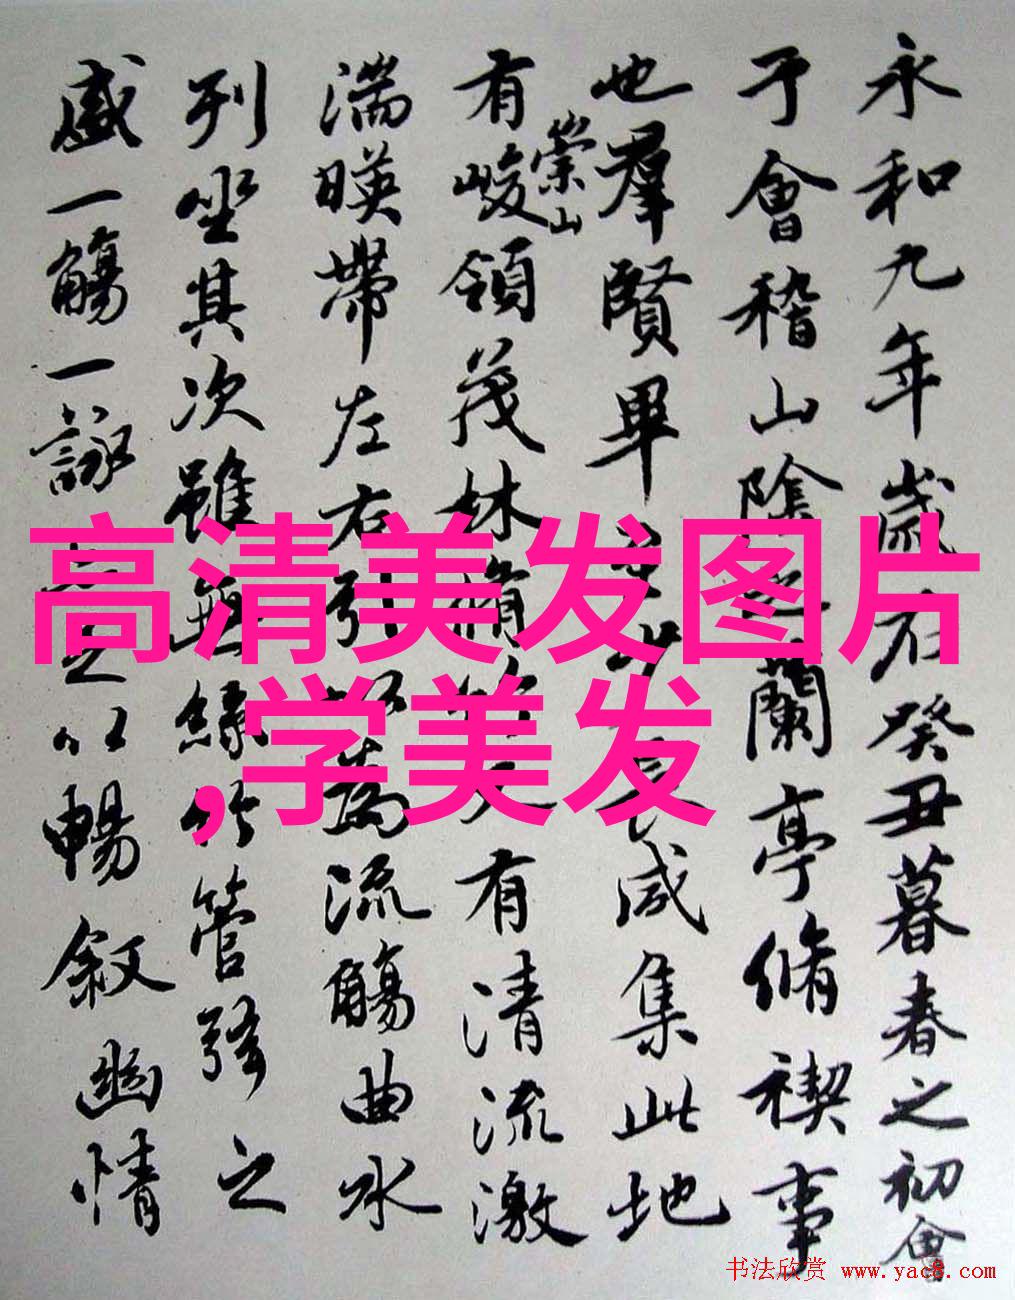 永和九年歲在癸丑暮春之初會
于會稽山陰之蘭亭脩禊事
也羣賢畢至少長咸集此地
有崇山峻領茂林脩竹又有清流激
湍暎帶左右引以為流觴曲水
列坐其次雖無絲竹管弦之
盛一觴一詠足以暢叙幽情
高清美发图片
,学美发
书法欣赏 www.yac8.com